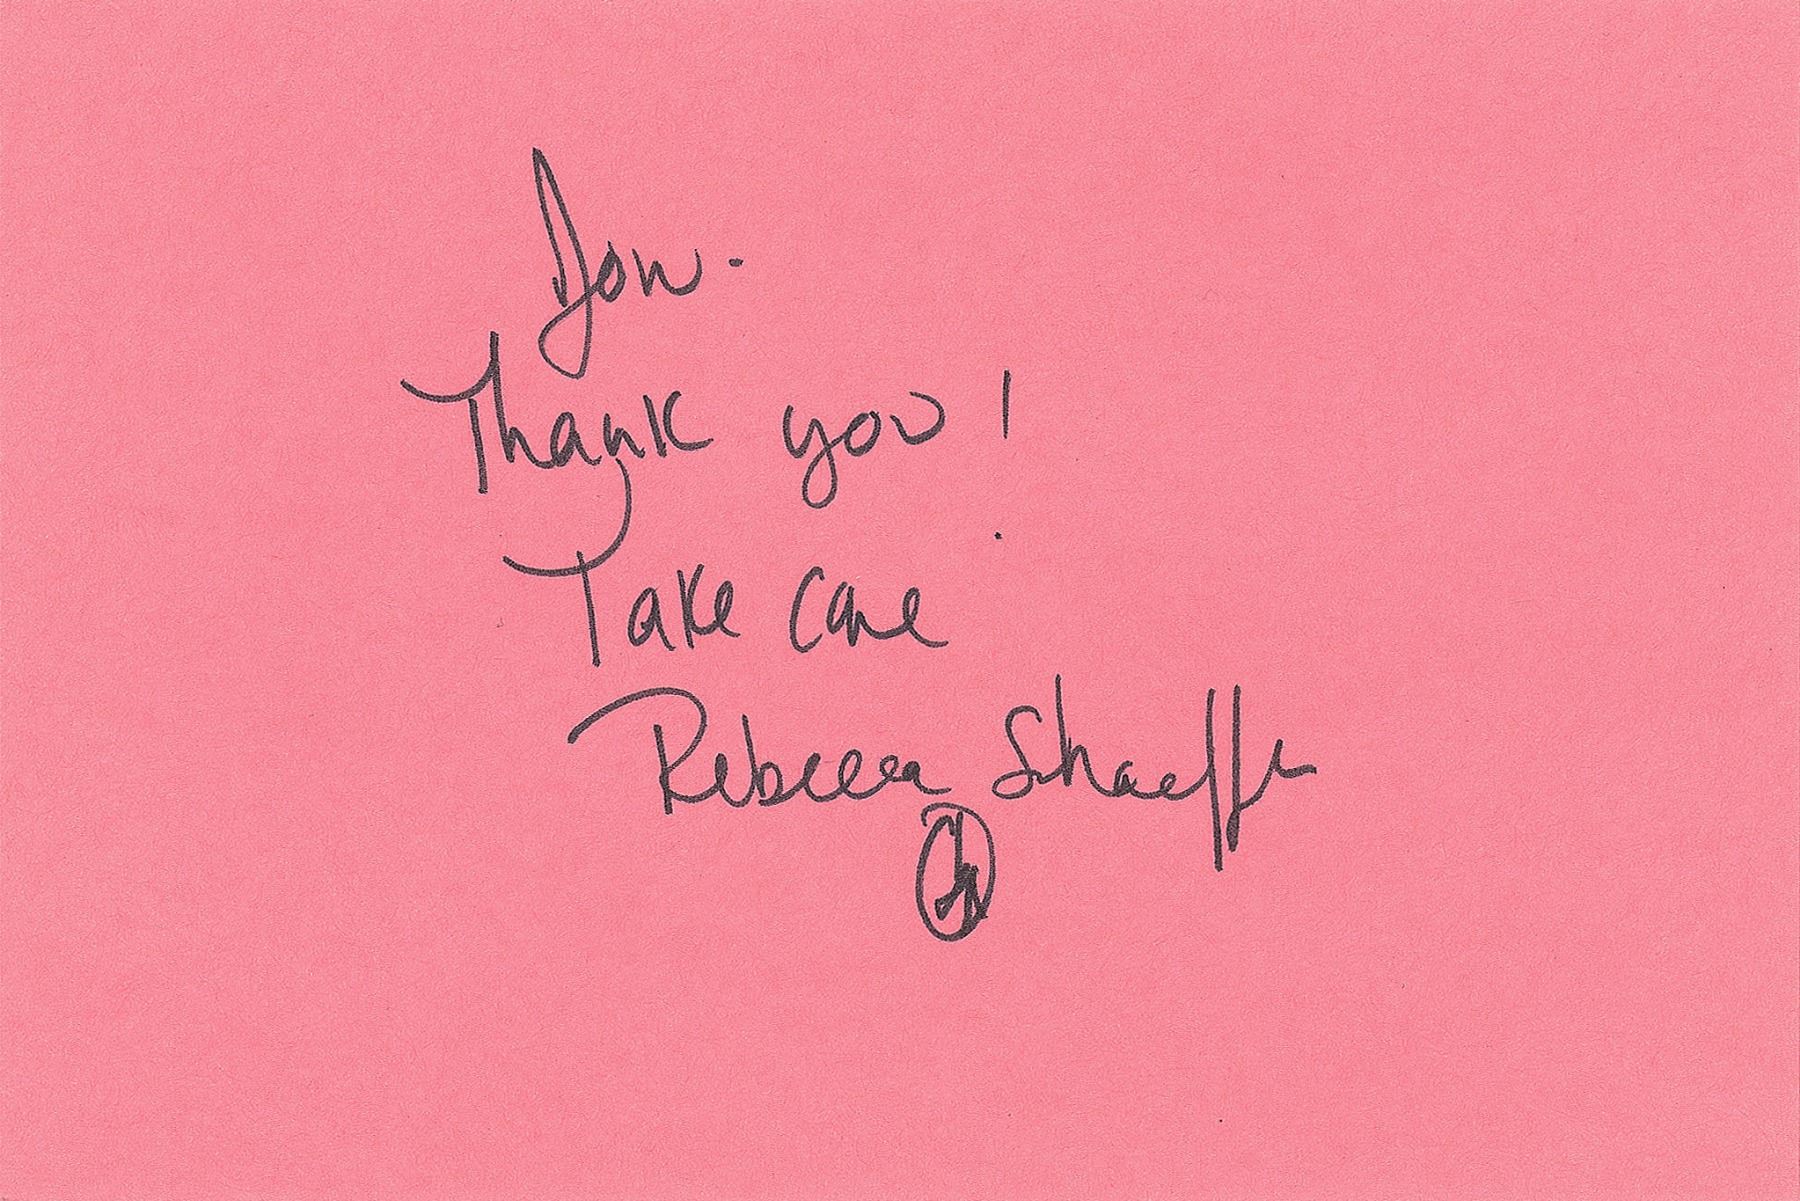 Don.
Thank you!
Take care
Rebecca Shaeffer